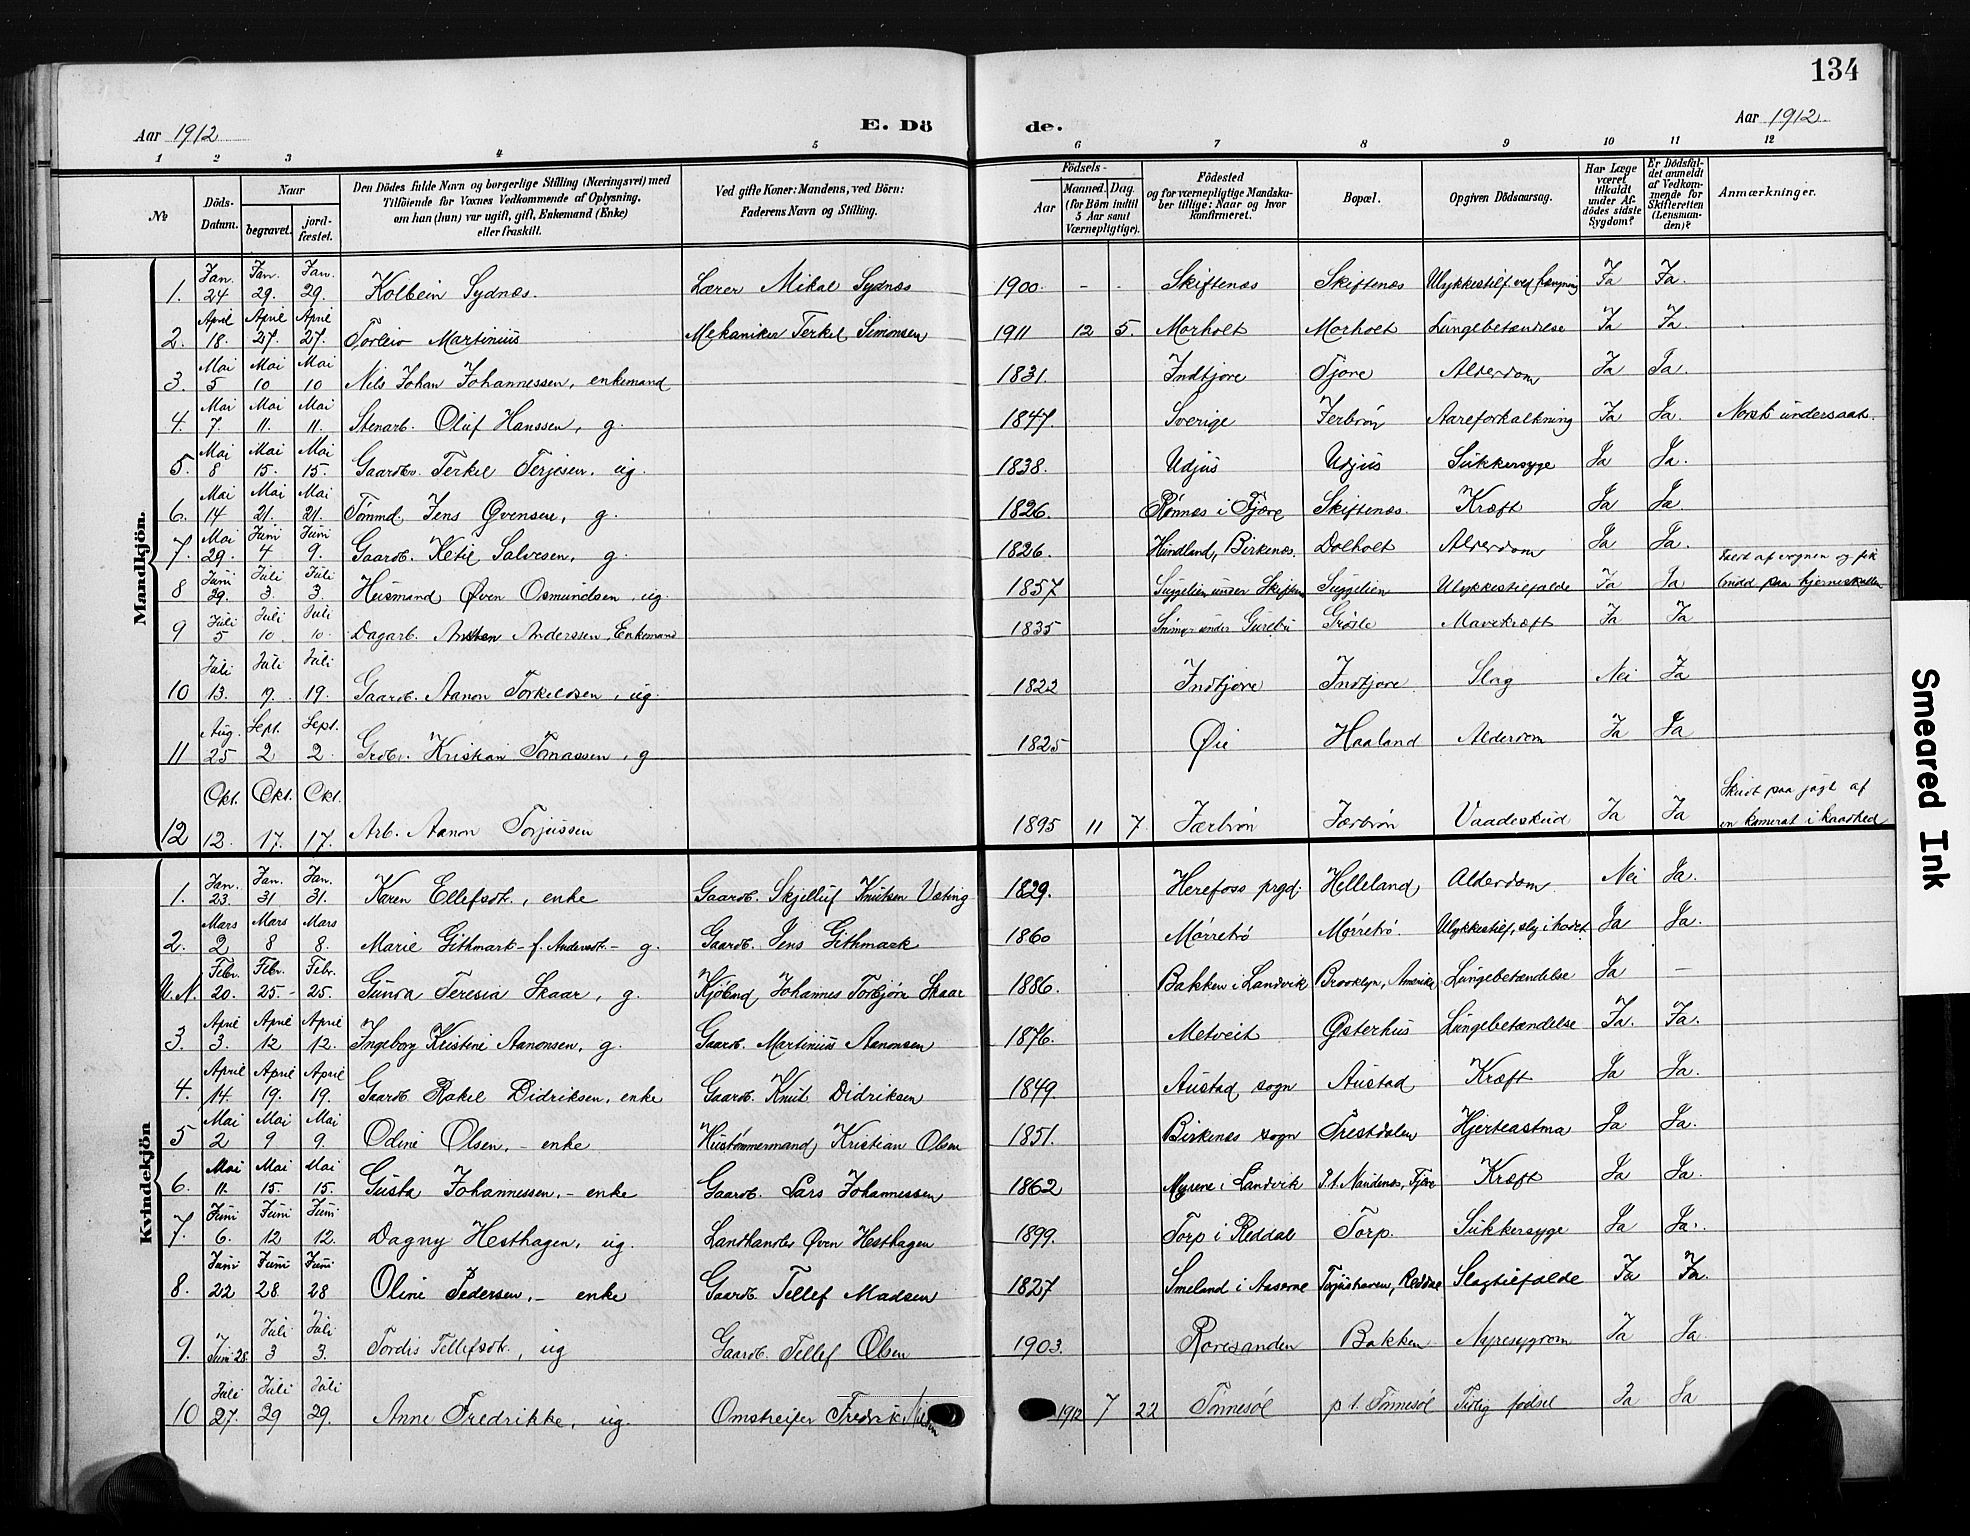 134
Aar 1912
E. Dö
de.
Aar 1912.
1 2 3 4 5 6 7 8 9 10 11 12
№
Döds-Datum.
Naar
begravet.
jord-fæstet.
Den Dödes fulde Navn og borgerlige Stilling (Næringsvei) med
Tilföiende for Voxnes Vedkommende af Oplysning.
om han (hun) var ugift, gift, Enkemand (Enke)
eller fraskilt.
Ved gifte Koner: Mandens, ved Börn:
Faderens Navn og Stilling.
Födsels-
Aar
Maaned. Dag.
(for Börn indtil
5 Aar samt
Værnepligtige).
Födested
og for værnepligtige Mandska-
ber tillige: Naar og hvor
konfirmeret.
Bopæl.
Opgiven Dödsaarsag.
Har Læge
været
tilkaldt
under Af-
dödes sidste
Sygdom?
Er Dödsfal-
det anmeldt
af Vedkom-
mende for
Skifteretten
(Lensman-
den)?
Anmærkninger.
Mandkjön.
1. Jan. 24 Jan. 29. Jan. 29. Kolbein Sydnæs. Lærer Mikal Sydnæs 1900. - - Skiftenæs Skiftenæs Ulykkestilf ved hængning Ja Ja.
2. April 18. April 27. April 27. Torleiv Martinius Mekaniker Terkel Simonsen 1911 12 5. Morholt Morholt Lungebetændelse Ja Ja.
3. Mai 5 Mai 10 Mai 10 Nils Johan Johannessen, enkemand 1831. Indtjore Fjore Alderdom Ja Ja.
4. Mai 7 Mai 11. Mai 11. Stenarb. Oluf Hanssen, g. 1847. Sverige Jerbrøn Aareforkalkning Ja Ja. Norsk undersaat.
5. Mai 8 Mai 15. Mai 15. Gaardbr. Terkel Terjesen, ug. 1838. Udjus Udjus Sukkersyge Ja Ja.
6. Mai 14 Mai 21. Mai 21. Tømmd. Jens Øvensen, g. 1826. Rønnes i Fjære Skiftenæs. Kræft Ja Ja.
7. Mai 29. Juni 4 Juni 9. Gaardb. Ketil Salvesen, g. 1826. Hundland, Birkenæs. Dolholt Alderdom Ja Ja.
8 Juni 29. Juli 3. Juli 3. Husmand Øven Osmundsen, ug. 1857 Suggelien under Skiften Suggelien Ulykkestilfælde Ja Ja af vognen og fik brudd paa hjerneskallen
9 Juli 5 Juli 10. Juli 10. Dagarb. Anderssen, Enkemand 1835 under Grøsle Mavekræft Ja Ja
10 Juli 13. Juli Juli 19. Gaardb. Aanon Torkeldsen, ug. 1822 Indtjore Indtjore Slag Nei Ja
11 Aug. 25 Sept. 2 Sept. 2 Grdbr. Kristian Tomassen, g 1825 Øie Haaland Alderdom Ja Ja
12 Okt. 12. Okt. 17. Okt. 17. Arb. Aanon Torjussen 1895 11 7. Jærbrøn Jærbrøn Vaadeskud Ja Ja Skudt paa jagt af en kamerat i haadhed
Kvindekjön
1. Jan. 23. Jan. 31 Jan. 31. Karen Ellefsdt., enke Gaardb. Skjelluf Knutsen Væting 1829. Herefoss prgd. Helleland, Alderdom Nei Ja.
2. Mars 2 Mars 8 Mars 8. Marie Githmark - f. Andersdt. - g. Gaardb. Jens Githmark 1860 Mørretrø Mørretrø. Ulykkestilf, slg i hodet. Ja Ja.
U.N. Febr. 20. Febr. 25 - Febr. 25. Gunda Teresia Skaar, g. Kjøbmd, Johannes Torbjørn Skaar 1886. Bakken i Landvik Brooklyn, Amerika Lungebetændelse Ja -
3. April 3. April 12 April 12. Ingeborg Kristine Aanonsen, g. Gaardb. Martinius Aanonsen 1876. Metveit Østerhus Lungebetændelse Ja. Ja.
4. April 14. April 19. April 19. Gaardb Rakel Didriksen, enke Gaardb. Knut Didriksen 1849. Austad sogn Austad Kræft Ja Ja.
5 Mai 2 Mai 9 Mai 9. Odine Olsen, - enke Hustømmermand, Kristian Olsen 1851. Birkenes sogn Prestdalen Hjerteastma Ja Ja.
6. Mai 11. Mai 15. Mai 15. Gusta Johannessen, - enke Gaardb. Lars Johannessen 1862 Myrene i Landvik P.t. Nandenæs, Fjære Kræft Ja Ja.
7. Juni 6. Juni 12 Juni 12. Dagny Hesthagen, ug. Landhandler Øven Hesthagen 1899. Torp i Reddal Torp. Sukkersyge Ja Ja.
8. Juni 22 Juni 28 Juni 28 Oline Pedersen, - enke Gaardb Tellef Madsen 1827 Smeland i Aaserae Torjushaven, Reddal Slagtilfælde Ja Ja.
9. Juni 28. Juli 3 Juli 3. Tordis Tellefsdt., ug Gaardb. Tellef Olsen 1903. Roresanden Bakken Nyresygdom Ja Ja
10 Juli 27. Juli 29 Juli 29. Anne Fredrikke, ug. Omstreifer Fredrik 1912 7 22 Tønnesøl p.t. Tønnesøl Tidlig fødsel Ja Ja
Smeared Ink